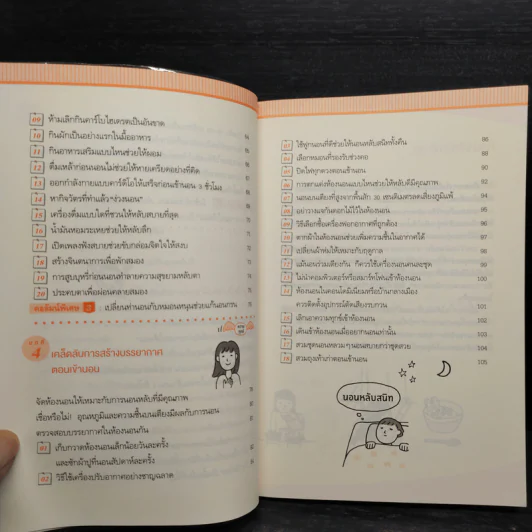 09 ห้ามเลิกกินคาร์โบไฮเดรตเป็นอันขาด
10 กินผักเป็นอย่างแรกในมื้ออาหาร
11 กินอาหารเสริมแบบไหนช่วยให้ผอม
12 ดื่มเหล้าก่อนนอนไม่ช่วยให้หายเครียดอย่างที่คิด
13 ออกกำลังกายแบบคาร์ดิโอให้เสร็จก่อนเข้านอน 3 ชั่วโมง
14 หากิจวัตรที่ทำแล้ว "ง่วงนอน"
15 เครื่องดื่มแบบใดที่ชวนให้หลับสบายที่สุด
16 น้ำมันหอมระเหยช่วยให้หลับลึก
17 เปิดเพลงฟังสบายช่วยขับกล่อมจิตใจให้สงบ
18 สร้างจินตนาการเพื่อพักสมอง
19 การสูบบุหรี่ก่อนนอนทำลายความสุขยามหลับตา
20 ประคบตาเพื่อผ่อนคลายสมอง
คอลัมน์พิเศษ 3 : เปลี่ยนท่านอนกับหมอนหนุนช่วยแก้นอนกรน
บทที่
4 เคล็ดลับการสร้างบรรยากาศ
ตอนเข้านอน
จัดห้องนอนให้เหมาะกับการนอนหลับที่มีคุณภาพ
เชื่อหรือไม่! อุณหภูมิและความชื้นบนเตียงมีผลกับการนอน
ตรวจสอบบรรยากาศในห้องนอนกัน
01 เก็บกวาดห้องนอนเล็กน้อยวันละครั้ง
และซักผ้าปูที่นอนสัปดาห์ละครั้ง
02 วิธีใช้เครื่องปรับอากาศอย่างชาญฉลาด
03 ใช้ฟูกนอนที่ดีช่วยให้นอนหลับสนิททั้งคืน 86
04 เลือกหมอนที่รองรับช่วงคอ 88
05 ปิดไฟทุกดวงตอนเข้านอน 90
06 การตกแต่งห้องนอนแบบไหนช่วยให้หลับดีมีคุณภาพ
07 นอนบนเตียงที่สูงจากพื้นสัก 30 เซนติเมตรลดเสี่ยงภูมิแพ้
08 อย่าวางแจกันดอกไม้ไว้ในห้องนอน
09 วิธีเลือกซื้อเครื่องฟอกอากาศที่ถูกต้อง
10 ตากผ้าในห้องนอนช่วยเพิ่มความชื้นในอากาศได้
11 เปลี่ยนผ้าห่มให้เหมาะกับฤดูกาล
12 แม้นอนร่วมเตียงกัน ก็ควรใช้เครื่องนอนคนละชุด
13 ไม่นำคอมพิวเตอร์หรือสมาร์ทโฟนเข้าห้องนอน
14 ห้องนอนในคอนโดมิเนียมหรือบ้านกลางเมือง
ควรติดตั้งอุปกรณ์ตัดเสียงรบกวน 101
15 เลิกเอาความทุกข์เข้าห้องนอน 102
16 เดินเข้าห้องนอนเมื่ออยากนอนเท่านั้น 103
17 สวมชุดนอนหลวมๆ นอนสบายกว่าชุดสวย 104
18 สวมถุงเท้าเก่าตอนเข้านอน 105
นอนหลับสนิท